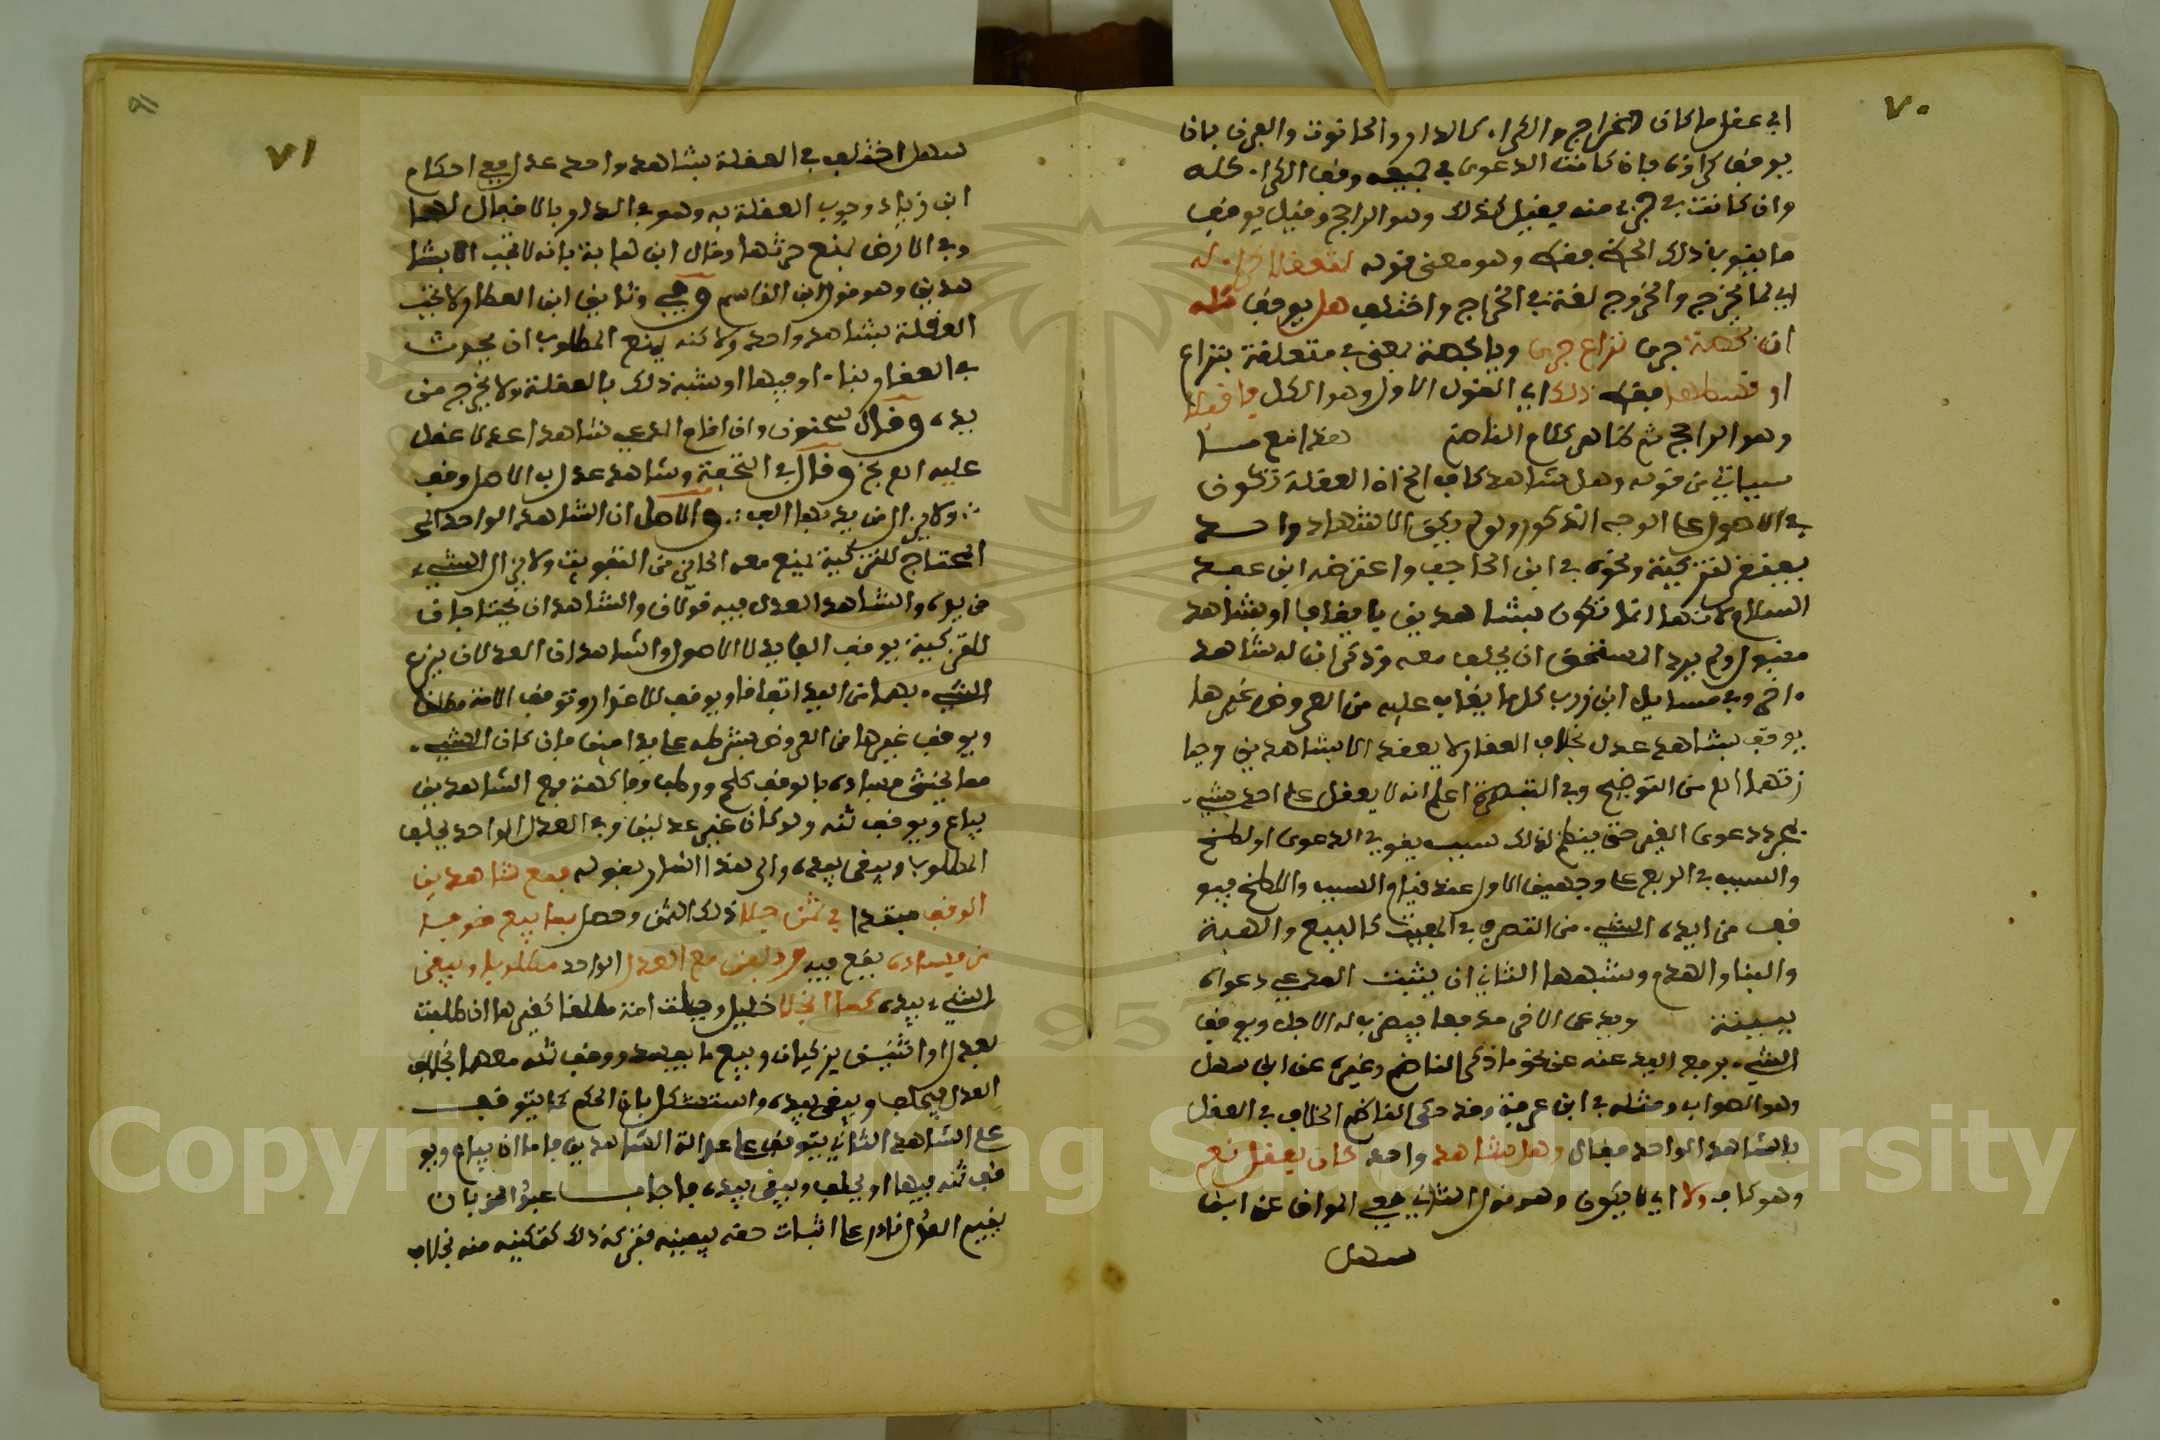 ٧٠
اي عقل ما كان لخراج والكراء كالدار والحانوت والفرن بان
يوقف كراؤه فان كانت الدعوى في جميعه وقف الكراء كله
وان كانت في جزء منه فقيل كذلك وهو الراجح وقيل يوقف
ما ينوب ذلك الجزء فقط وهو معنى قوله
اي لما يخرج والخروج لغة في الخراج واختلف هل يوقف كله
ان بحصة جرى نزاع جرى وبالحصة يعني في متعلقة بنزاع
او قسطها فقط ذلك اي القول الاول وهو الكل
وهو الراجح ثم ظاهر كلام الناظم هنا مع ما
سياتي من قوله وهل بشاهد كاف الخ ان العقلة تكون
في الاصول على الوجه المذكور ولو لم يكن الا شاهد واحد
يفتقر لتزكية ونحوه في ابن الحاجب واعترضه ابن عبد
السلام لانها انما تكون بشاهدين يا او بشاهد
مقبول ولم يرد المستحق ان يحلف معه وذكر ان له شاهدا
اخر وفي مسايل ابن زرب كل ما يغاب عليه من العروض وغيرها
يوقف بشاهد عدل بخلاف العقار لا يعقد الا بشاهدين وحيا
زتهما الخ من التوضيح وفي التبصرة اعلم انه لا يعقل على احد شيء
بمجرد دعوى الغير حتى ينظم لذلك سبب يقوي الدعوى او لطخ
والسبب في الربع على وجهين الاول عند قيام السبب واللطخ فيو
قف من ابده الشيء من التصرف المفيت كالبيع والهبة
والبنا والهدم وشبهها الثاني ان يثبت المدعي دعواه
ببينة ويدعي الاخر مدفعا فيضرب له الاجل ويوقف
الشيء برفع اليد عنه عن نحو ما ذكر الناظم وغيره عن ابن سهل
وهو الصواب ومثله في ابن عرفة وقد حكى الناظم الخلاف في العقل
بالشاهد الواحد فقال وهل بشاهد واحد كان يعقل نعم
وهو كاف ولا اي لا يكون وهو قول الثاني ففي المواق عن ابن
سهل
٧١
سهل اختلف في العقلة بشاهد واحد عدل ففي احكام
ابن زياد وجوب العقلة به وهو في الدار بالاقفال لها
وفي الارض بمنع حرثها وقال ابن لبابة بانه لا تجب الا بشا
هدين وهو قول ابن القاسم وفي وثائق ابن العطار لا تجب
العقلة بشاهد واحد ولاكنه يمنع المطلوب ان يحدث
في العقار بناء او بيعا او شبه ذلك بالعقلة ولا يخرج من
يده وقال سحنون وان اقام المدعي شاهدا عدلا عقل
عليه الخ وقال في التحفة وشاهد عدل به الاصل وقف
ولا يزال من يد بها الف والاصل ان الشاهد الواحد الى
المحتاج للتزكية يمنع معه الحائز من التفويت ولا يزال الشيء
من يده والشاهد العدل فيه قولان والشاهدان يحتاجان
للتزكية يوقف الفايد لا الاصول والشاهدان العدلان ينزع
الشيء بهما من اليد اتفاقا ويوقف للاعذار وتوقف الامة مطلقا
ويوقف غيرها من العروض بشرطه على يد امين فان كان الشيء
مما يخشى فساده بالوقف كلحم ورطب وفاكهة فمع الشاهدين
يباع ويوقف ثمنه ولو كانا غير عدلين وفي العدل الواحد يحلف
المطلوب ويبقى بيده والى هذا اشار بقوله فمع شاهدين
الوقف فيقدا في ثمن جلا ذلك الثمن وحصل بما بيع خوف ما
من فساده يقع فيه مع العدل الواحد مطلوبا ويبقى
الشيء بيده كما انجلا خليل وحيلت امة مطلقا كغيرها ان طلبت
بعدل او اثنين يزكيان وبيع ما يفسد ووقف ثمنه معهما بخلاف
العدل فيحلف ويبقى بيده واستشكل بان الحكم كما يتوقف
على الشاهد الثاني يتوقف على عدالة الشاهدين فاما ان يباع ويو
قف ثمنه فيهما او يحلف ويبقى بيده فاجاب عبد الحق بان
مقيم العدل قادر على اثبات حقه بيمينه فتركه ذلك كتمكينه منه بخلاف